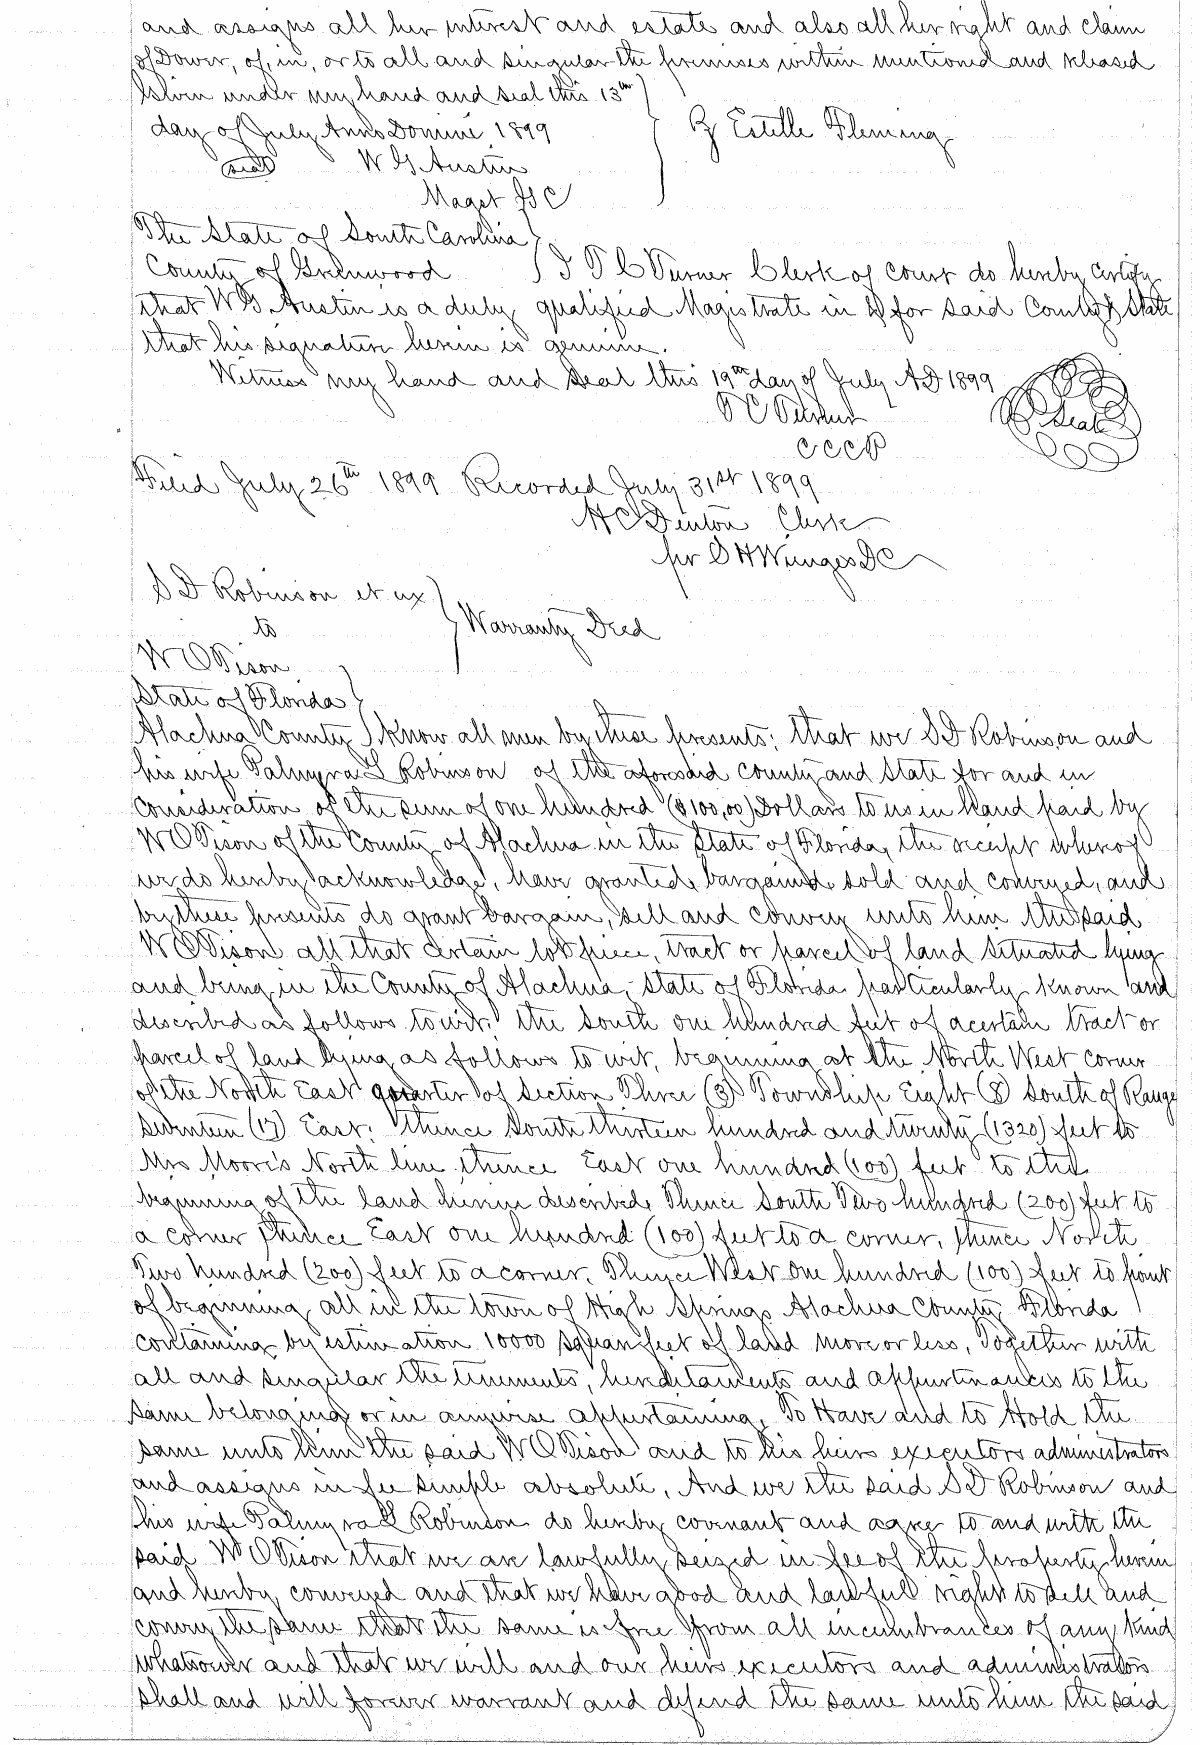 and assigns all her interest and estate and also all her right and claim
of Dower, of, in, or to all and singular the premises within mentioned and released
Given under my hand and seal this 13th
day of July Anno Domini 1899 } Estelle Fleming
seal W G Austin
Magst G C
The State of South Carolina }
County of Greenwood } I T C Turner Clerk of Court do hereby certify
that W G Austin is a duly qualified Magistrate in & for said County & State
that his signature herein is genuine.
Witness my hand and seal this 19th day of July AD 1899
T C Turner seal
C C C P
Filed July 26th 1899 Recorded July 31st 1899
H C Denton Clerk
per S H Wienges DC
S D Robinson et ux }
to } Warranty Deed
W O Tison
State of Florida }
Alachua County } Know all men by these presents: that we S D Robinson and
his wife Palmyra L Robinson of the aforesaid county and State for and in
consideration of the sum of one hundred ($100,00) Dollars to us in hand paid by
W O Tison of the County of Alachua in the State of Florida, the receipt whereof
we do hereby acknowledge, have granted, bargained, sold and conveyed, and
by these presents do grant bargain, sell and convey unto him the said
W O Tison all that certain lot piece, tract or parcel of land situated lying
and being in the County of Alachua, State of Florida particularly known and
described as follows to wit: the South one hundred feet of a certain tract or
parcel of land lying as follows to wit, beginning at the North West corner
of the North East quarter of Section Three (3) Township Eight (8) South of Range
Seventeen (17) East: thence South thirteen hundred and twenty (1320) feet to
Mrs Moore's North line thence East one hundred (100) feet to the
beginning of the land herein described, Thence South Two hundred (200) feet to
a corner thence East one hundred (100) feet to a corner, thence North
Two hundred (200) feet to a corner, Thence West one hundred (100) feet to point
of beginning, all in the town of High Springs Alachua County Florida
containing by estimation 10000 square feet of land more or less, Together with
all and singular the tenements, hereditaments and appurtenances to the
same belonging or in anywise appertaining, To Have and to Hold the
same unto him the said W O Tison and to his heirs executors administrators
and assigns in fee simple absolute, And we the said S D Robinson and
his wife Palmyra L Robinson do hereby covenant and agree to and with the
said W O Tison that we are lawfully seized in fee of the property herein
and hereby conveyed and that we have good and lawful right to sell and
convey the same that the same is free from all incumbrances of any kind
whatsoever and that we will and our heirs executors and administrators
shall and will forever warrant and defend the same unto him the said